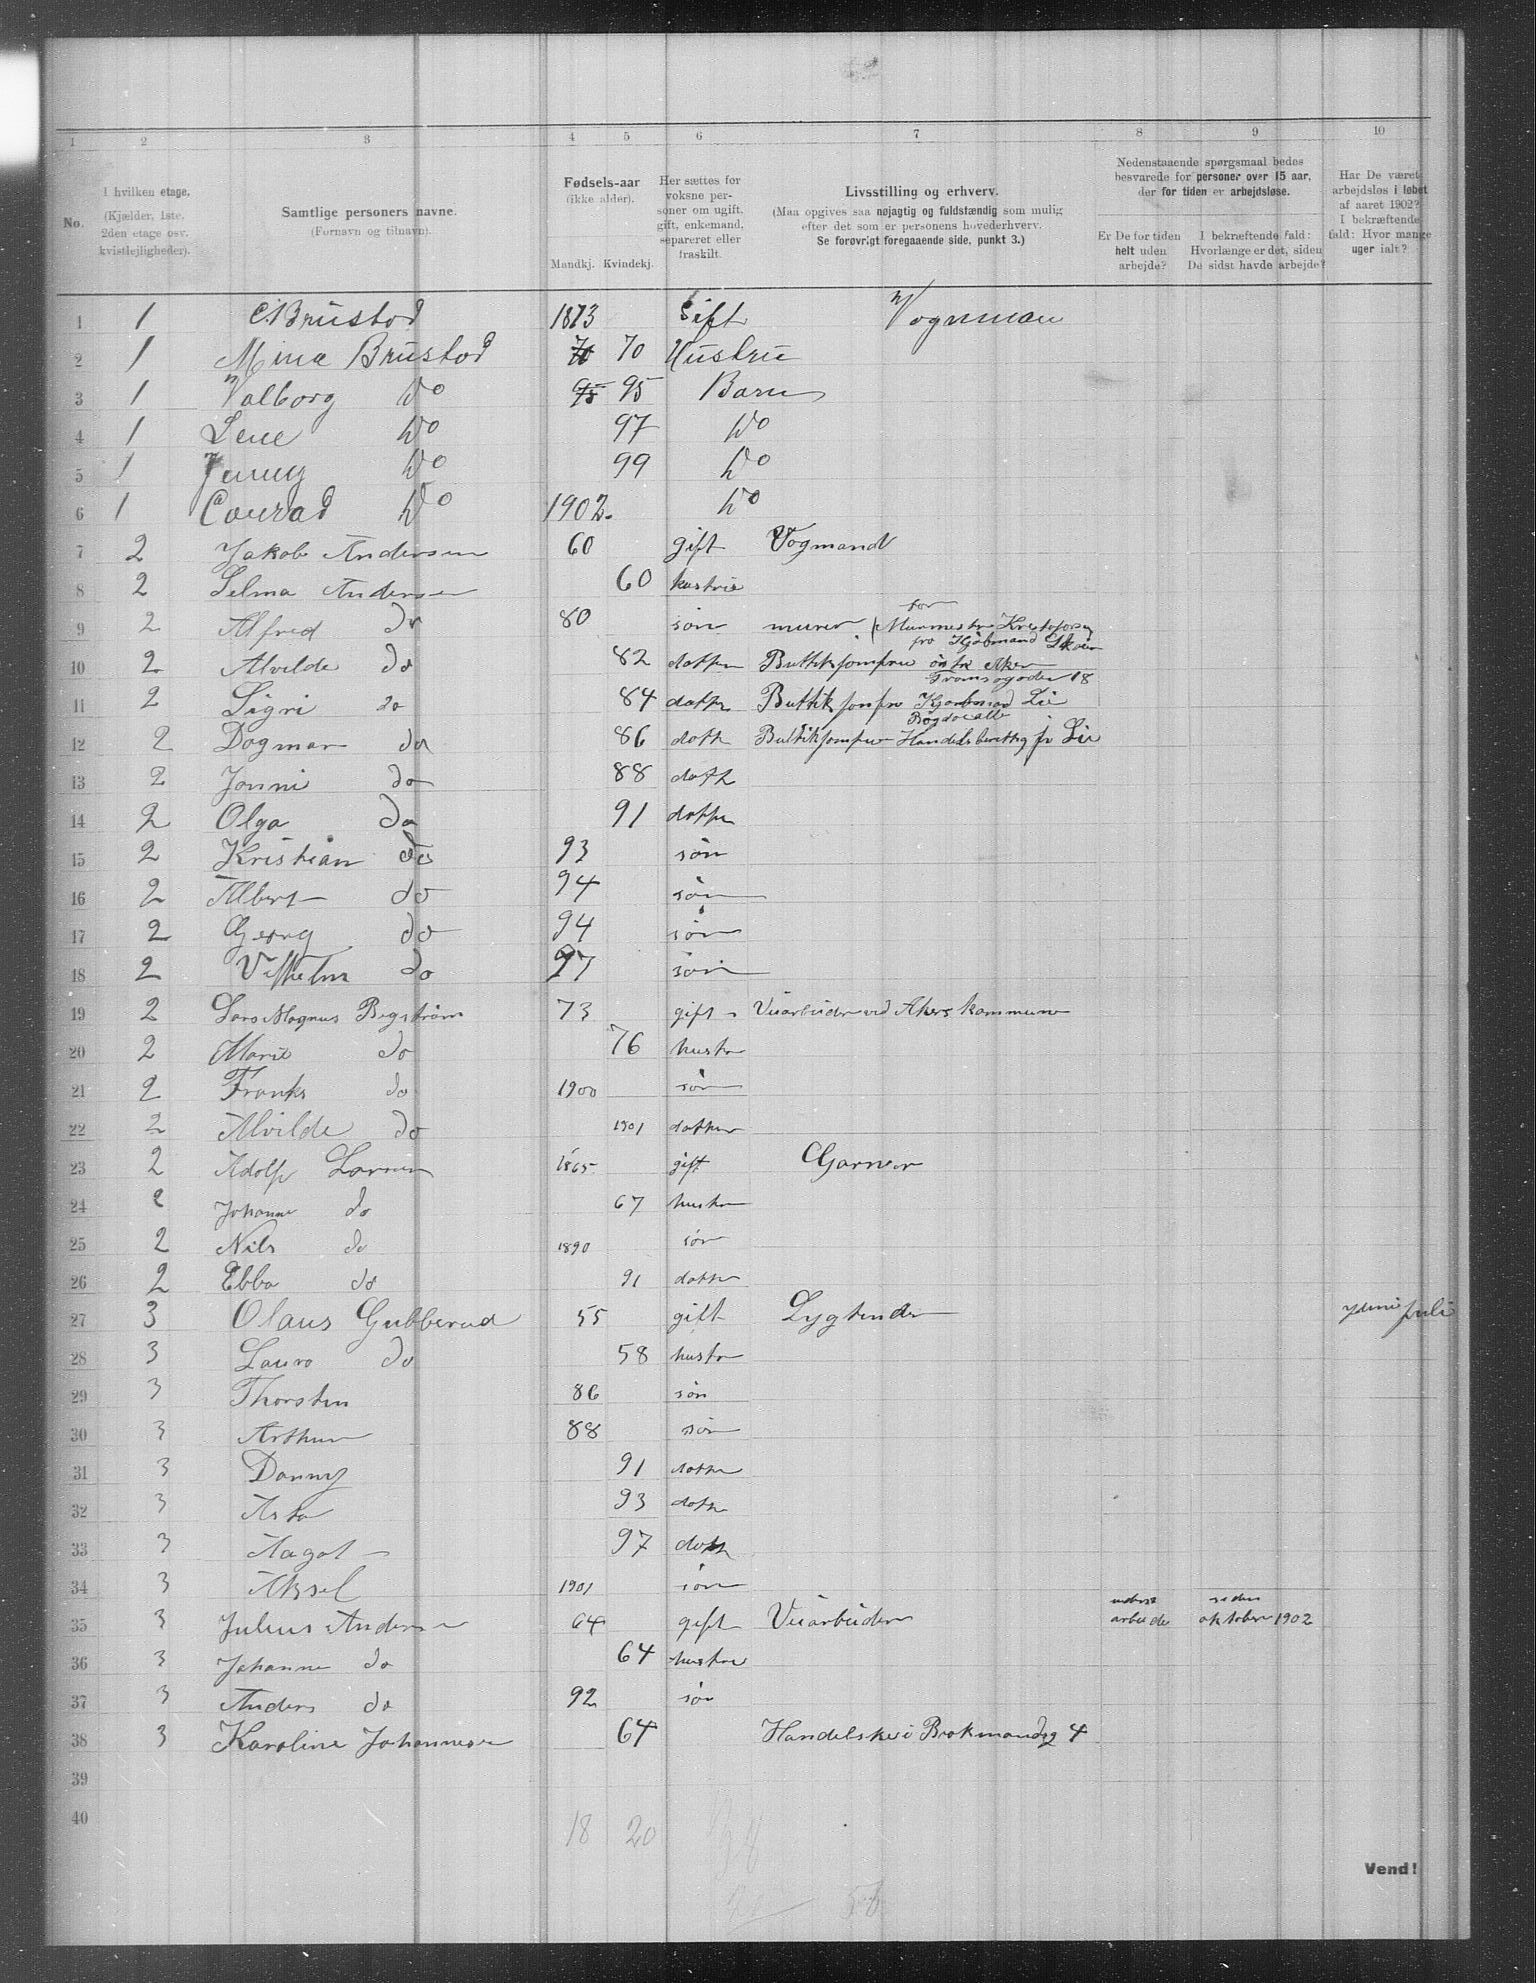 1 2 3 4 5 6 7 8 9 10
No.
I hvilken etage.
(Kjælder, 1ste,
2den etage osv.
kvistlejligheder).
Samtlige personers navne.
(Fornavn og tilnavn).
Fødsels-aar
(ikke alder).
Mandkj. Kvindekj.
Her sættes for
voksne per-
soner om ugift,
gift, enkemand,
separeret eller
fraskilt.
Livsstilling og erhverv.
(Maa opgives saa nøjagtig og fuldstændig som mulig
efter det som er personens hovederhverv.
Se forøvrigt foregaaende side, punkt 3.)
Nedenstaaende spørgsmaal bedes
besvarede for personer over 15 aar,
der for tiden er arbejdsløse.
Er De for tiden
helt uden
arbejde?
I bekræftende fald:
Hvorlænge er det, siden
De sidst havde arbejde?
Har De været
arbejdsløs i løbet
af aaret 1902?
I bekræftende
fald: Hvor mange
uger ialt?
1 1 C Brustod 1873 Gift Vognman
2 1 Mina Brustod 70 70 Hustru
3 1 Valborg Do 95 95 Barn
4 1 Lene Do 97 Do
5 1 Jenny Do 99 Do
6 1 Conrad Do 1902. Do
7 2 Jakob Andersen 60 gift Vogmand
8 2 Selma Andersen 60 hustru
for
9 2 Alfred Do 80 søn murer Murmester Kristofersen
10 2 Alvilde do 82 datter Buttikjomfru Aker
18
11 2 Sigri do 84 datter Buttikjomfru Kjøbmand Lie
12 2 Dagmar do 86 datter Buttikjomfru Lie
13 2 Jonni do 88 datter
14 2 Olga do 91 datter
15 2 Kristian do 93 søn
16 2 Albert do 94 søn
17 2 Georg do 94 søn
18 2 Vilhelm do 97 søn
19 2 Lars Magnus Bergstrøm 73 gift Veiarbeider ved Akers kommune
20 2 Marie do 76 hustru
21 2 Franks do 1900 søn
22 2 Alvilde do 1901 datter
23 2 Adolf Larsen 1865 gift Garver
24 2 Johanne do 67 hustru
25 2 Nils do 1890 søn
26 2 Ebba do 91 datter
27 3 Olaus Gubberud 55 gift Lygtender juli
28 3 Laura do 58 hustru
29 3 Thorsten 86 søn
30 3 Arthur 88 søn
31 3 Danny 91 datter
32 3 Asta 93 datter
33 3 Aagot 97 datter
34 3 Aksel 1901 søn
siden
35 3 Julius Andersen 64 gift Veiarbeider arbeide oktober 1902
36 3 Johanne do 64 hustru
37 3 Anders do 92 søn
38 3 Karoline Johannesen 64 Handelske i Brokmandsg 4
39
40
18 20
38
56
Vend!